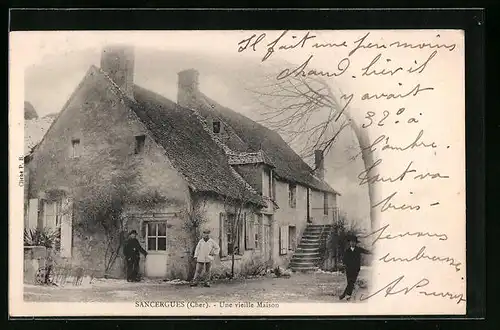 Il fait une peu moins
chaud. hier il
y avait
32° à
l'ombre.
tout va
bien-
femmes
embrasse
Cliché P. B.
SANCERGUES (Cher). - Une vieille Maison